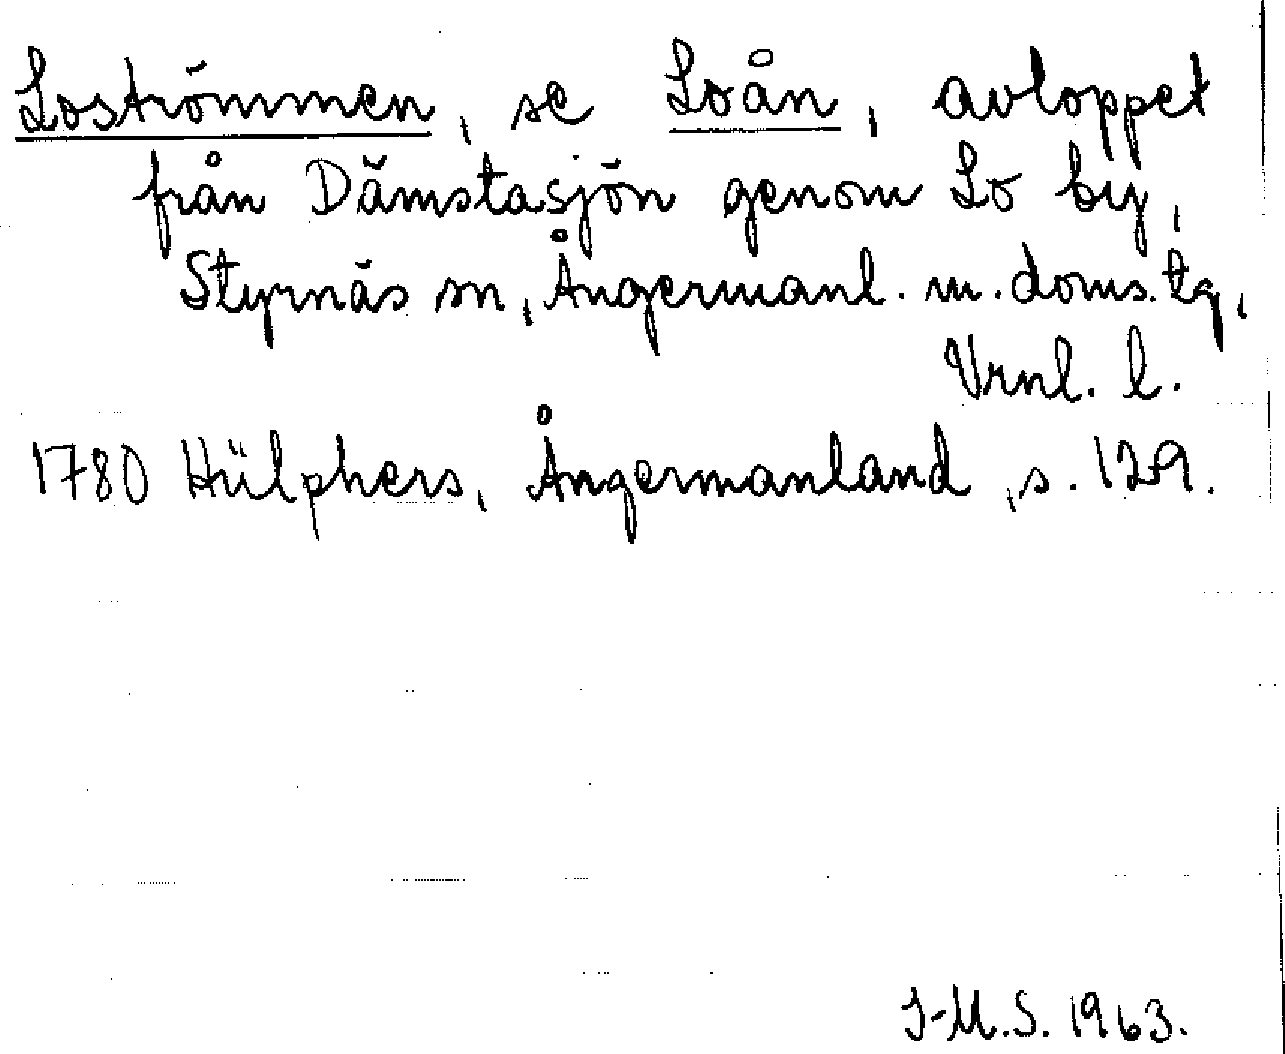 Loströmmen, se Loån, avloppet
från Dämstasjön genom Lo by,
Styrnäs sn, Ångermanl. m. doms. tg,
Vrnl. l.
1780 Hülphers, Ångermanland, s. 129.
J-M.S. 1963.